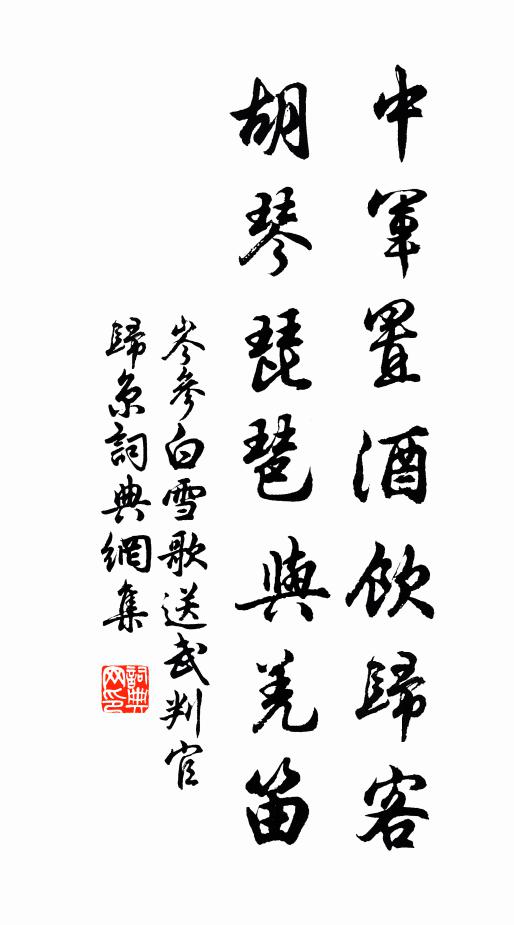 中軍置酒飲歸客
胡琴琵琶與羌笛
岑參白雪歌送武判官
歸京詞典網集
詞典
网印